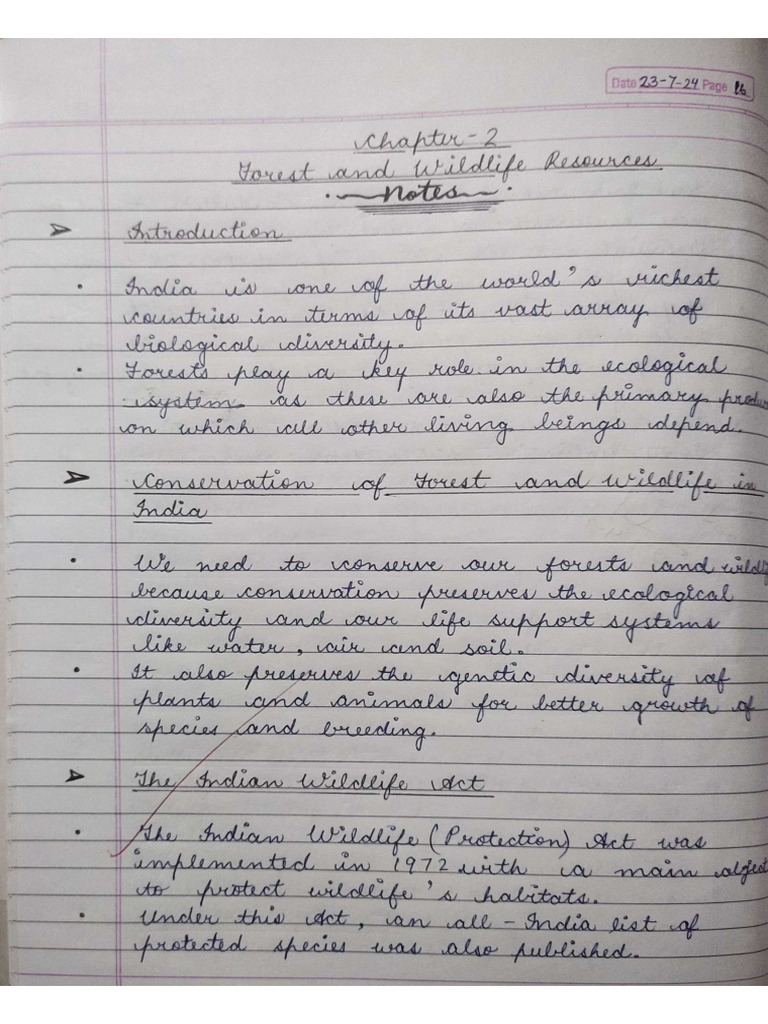 Date 23-7-24 Page
Chapter-2
Forest and Wildlife Resources
Notes
Introduction
India is one of the world's richest
countries in terms of its vast array of
biological diversity.
Forests play a key role in the ecological
system as these are also the primary produ
on which all other living beings depend.
Conservation of Forest and Wildlife in
India
We need to conserve our forests and wildli
because conservation preserves the ecological
diversity and our life support systems
like water, air and soil.
It also preserves the genetic diversity of
plants and animals for better growth of
species and breeding.
The Indian Wildlife Act
The Indian Wildlife (Protection) Act was
implemented in 1972 with a main object
to protect wildlife's habitats.
Under this Act, an all-India list of
protected species was also published.